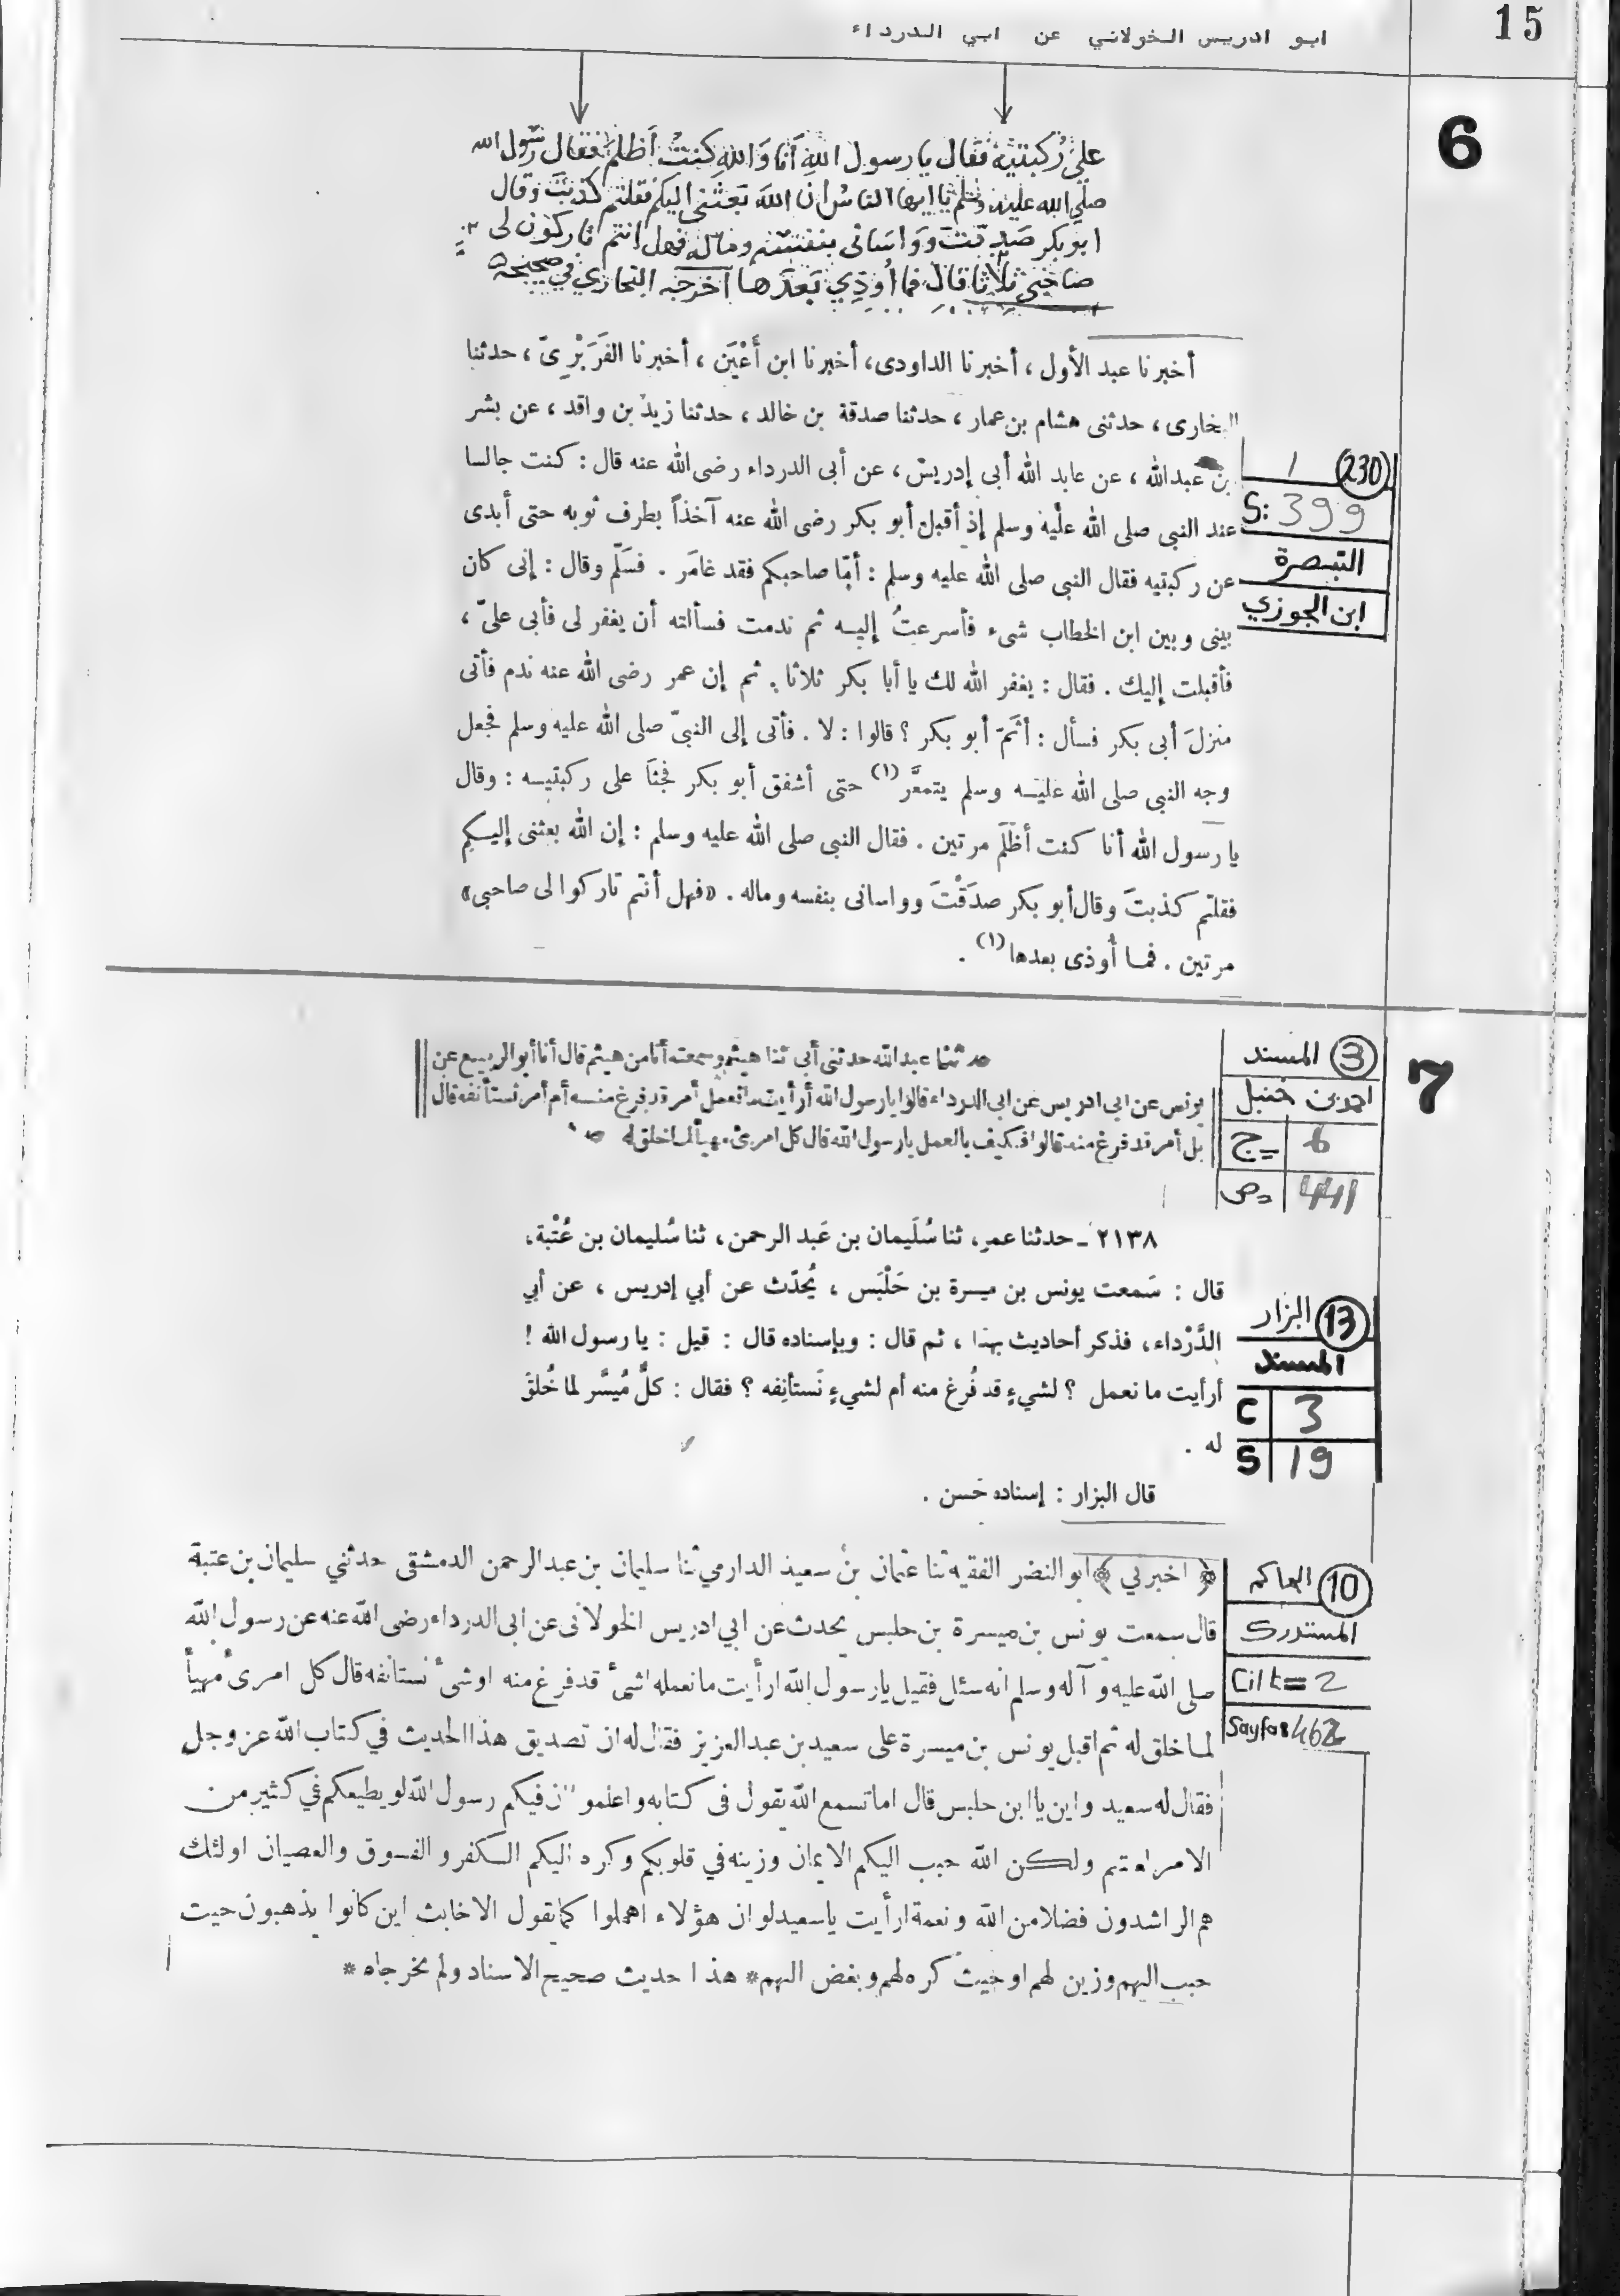 15
ابو ادريس الخولاني عن ابي الدرداء
6
على ركبتيه فقال يا رسول الله أنا والله كنت أظلم فقال رسول الله
صلى الله عليه وسلم يا ايها الناس ان الله بعثني اليكم فقلتم كذبت وقال
ابو بكر صدقت وواساني بنفسه وماله فهل انتم تاركون لي
صاحبي ثلاثا قال فما أوذي بعدها أخرجه البخاري في صحيحه
أخبرنا عبد الأول ، أخبرنا الداودى، أخبرنا ابن أَعْيَن ، أخبرنا الفَرَبْرِىّ ، حدثنا
البخارى ، حدثنى هشام بن عمار ، حدثنا صدقة بن خالد ، حدثنا زيد بن واقد ، عن بشر
بن عبدالله ، عن عابد الله أبى إدريس ، عن أبى الدرداء رضى الله عنه قال : كنت جالسا
عند النبى صلى الله عليه وسلم إذ أقبل أبو بكر رضى الله عنه آخذاً بطرف ثوبه حتى أبدى
عن ركبتيه فقال النبى صلى الله عليه وسلم : أمّا صاحبكم فقد غامَر . فسَلَّم وقال : إنى كان
بينى وبين ابن الخطاب شىء فأسرعتُ إليه ثم ندمت فسألته أن يغفر لى فأبى علىّ ،
فأقبلت إليك . فقال : يغفر الله لك يا أبا بكر ثلاثا . ثم إن عمر رضى الله عنه ندم فأتى
منزلَ أبى بكر فسأل : أثَمّ أبو بكر ؟ قالوا : لا . فأتى إلى النبىّ صلى الله عليه وسلم فجعل
وجه النبى صلى الله عليه وسلم يتمعَّر (١) حتى أشفق أبو بكر فجثَا على ركبتيه : وقال
يا رسول الله أنا كنت أظلَمَ مرتين . فقال النبى صلى الله عليه وسلم : إن الله بعثنى إليكم
فقلتم كذبتَ وقال أبو بكر صدَقْتَ وواسانى بنفسه وماله . «فهل أنتم تاركوا لى صاحبى»
مرتين . فما أُوذى بعدها (١) .
(230) 1
S: 399
التبصرة
ابن الجوزي
7
(3) المسند
احمد بن حنبل
ج= 6
ص= 441
حدثنا عبدالله حدثنى أبى ثنا هيثم وسمعته أنا من هيثم قال أنا أبو الربيع عن
يونس عن ابى ادريس عن ابى الدرداء قالوا يارسول الله أرأيت ما نعمل أمر قد فرغ منه أم أمر نستأنفه قال
بل أمر قد فرغ منه قالوا فكيف بالعمل يارسول الله قال كل امرئ مهيأ لما خلق له
٢١٣٨ ـ حدثنا عمر، ثنا سُلَيمان بن عَبد الرحمن، ثنا سُليمان بن عُتْبة،
قال : سَمعت يونس بن ميسرة بن حَلْبَس ، يُحدّث عن أبي إدريس ، عن أبي
الدَّرْداء، فذكر أحاديث بهذا ، ثم قال : وبإسناده قال : قيل : يا رسول الله !
أرأيت ما نعمل ؟ لشيءٍ قد فُرغ منه أم لشيءٍ نَستأنِفه ؟ فقال : كلٌّ مُيسَّر لما خُلقَ
له .
قال البزار : إسناده حَسن .
(13) البزار
المسند
C 3
S 19
﴿ اخبرني ﴾ ابو النضر الفقيه ثنا عثمان بن سعيد الدارمي ثنا سليمان بن عبد الرحمن الدمشقى حدثني سليمان بن عتبة
قال سمعت يونس بن ميسرة بن حلبس يحدث عن ابي ادريس الخولانى عن ابى الدرداء رضى الله عنه عن رسول الله
صلى الله عليه وآله وسلم انه سئل فقيل يا رسول الله ارأيت ما نعمله اشئ قد فرغ منه او شئ نستانفه قال كل امرئ مهيأ
لما خلق له ثم اقبل يونس بن ميسرة على سعيد بن عبد العزيز فقال له ان تصديق هذا الحديث في كتاب الله عز وجل
فقال له سعيد واين يا ابن حلبس قال اما تسمع الله يقول فى كتابه واعلموا ان فيكم رسول الله لو يطيعكم في كثير من
الامر لعنتم ولكن الله حبب اليكم الايمان وزينه في قلوبكم وكره اليكم الكفر والفسوق والعصيان اولئك
هم الراشدون فضلا من الله ونعمة ارأيت يا سعيد لو ان هؤلاء اهملوا كما يقول الاخابث اين كانوا يذهبون حيث
حبب اليهم وزين لهم او حيث كره لهم وبغض اليهم * هذا حديث صحيح الاسناد ولم يخرجاه *
(10) الحاكم
المستدرك
Cilt= 2
Sayfa: 462